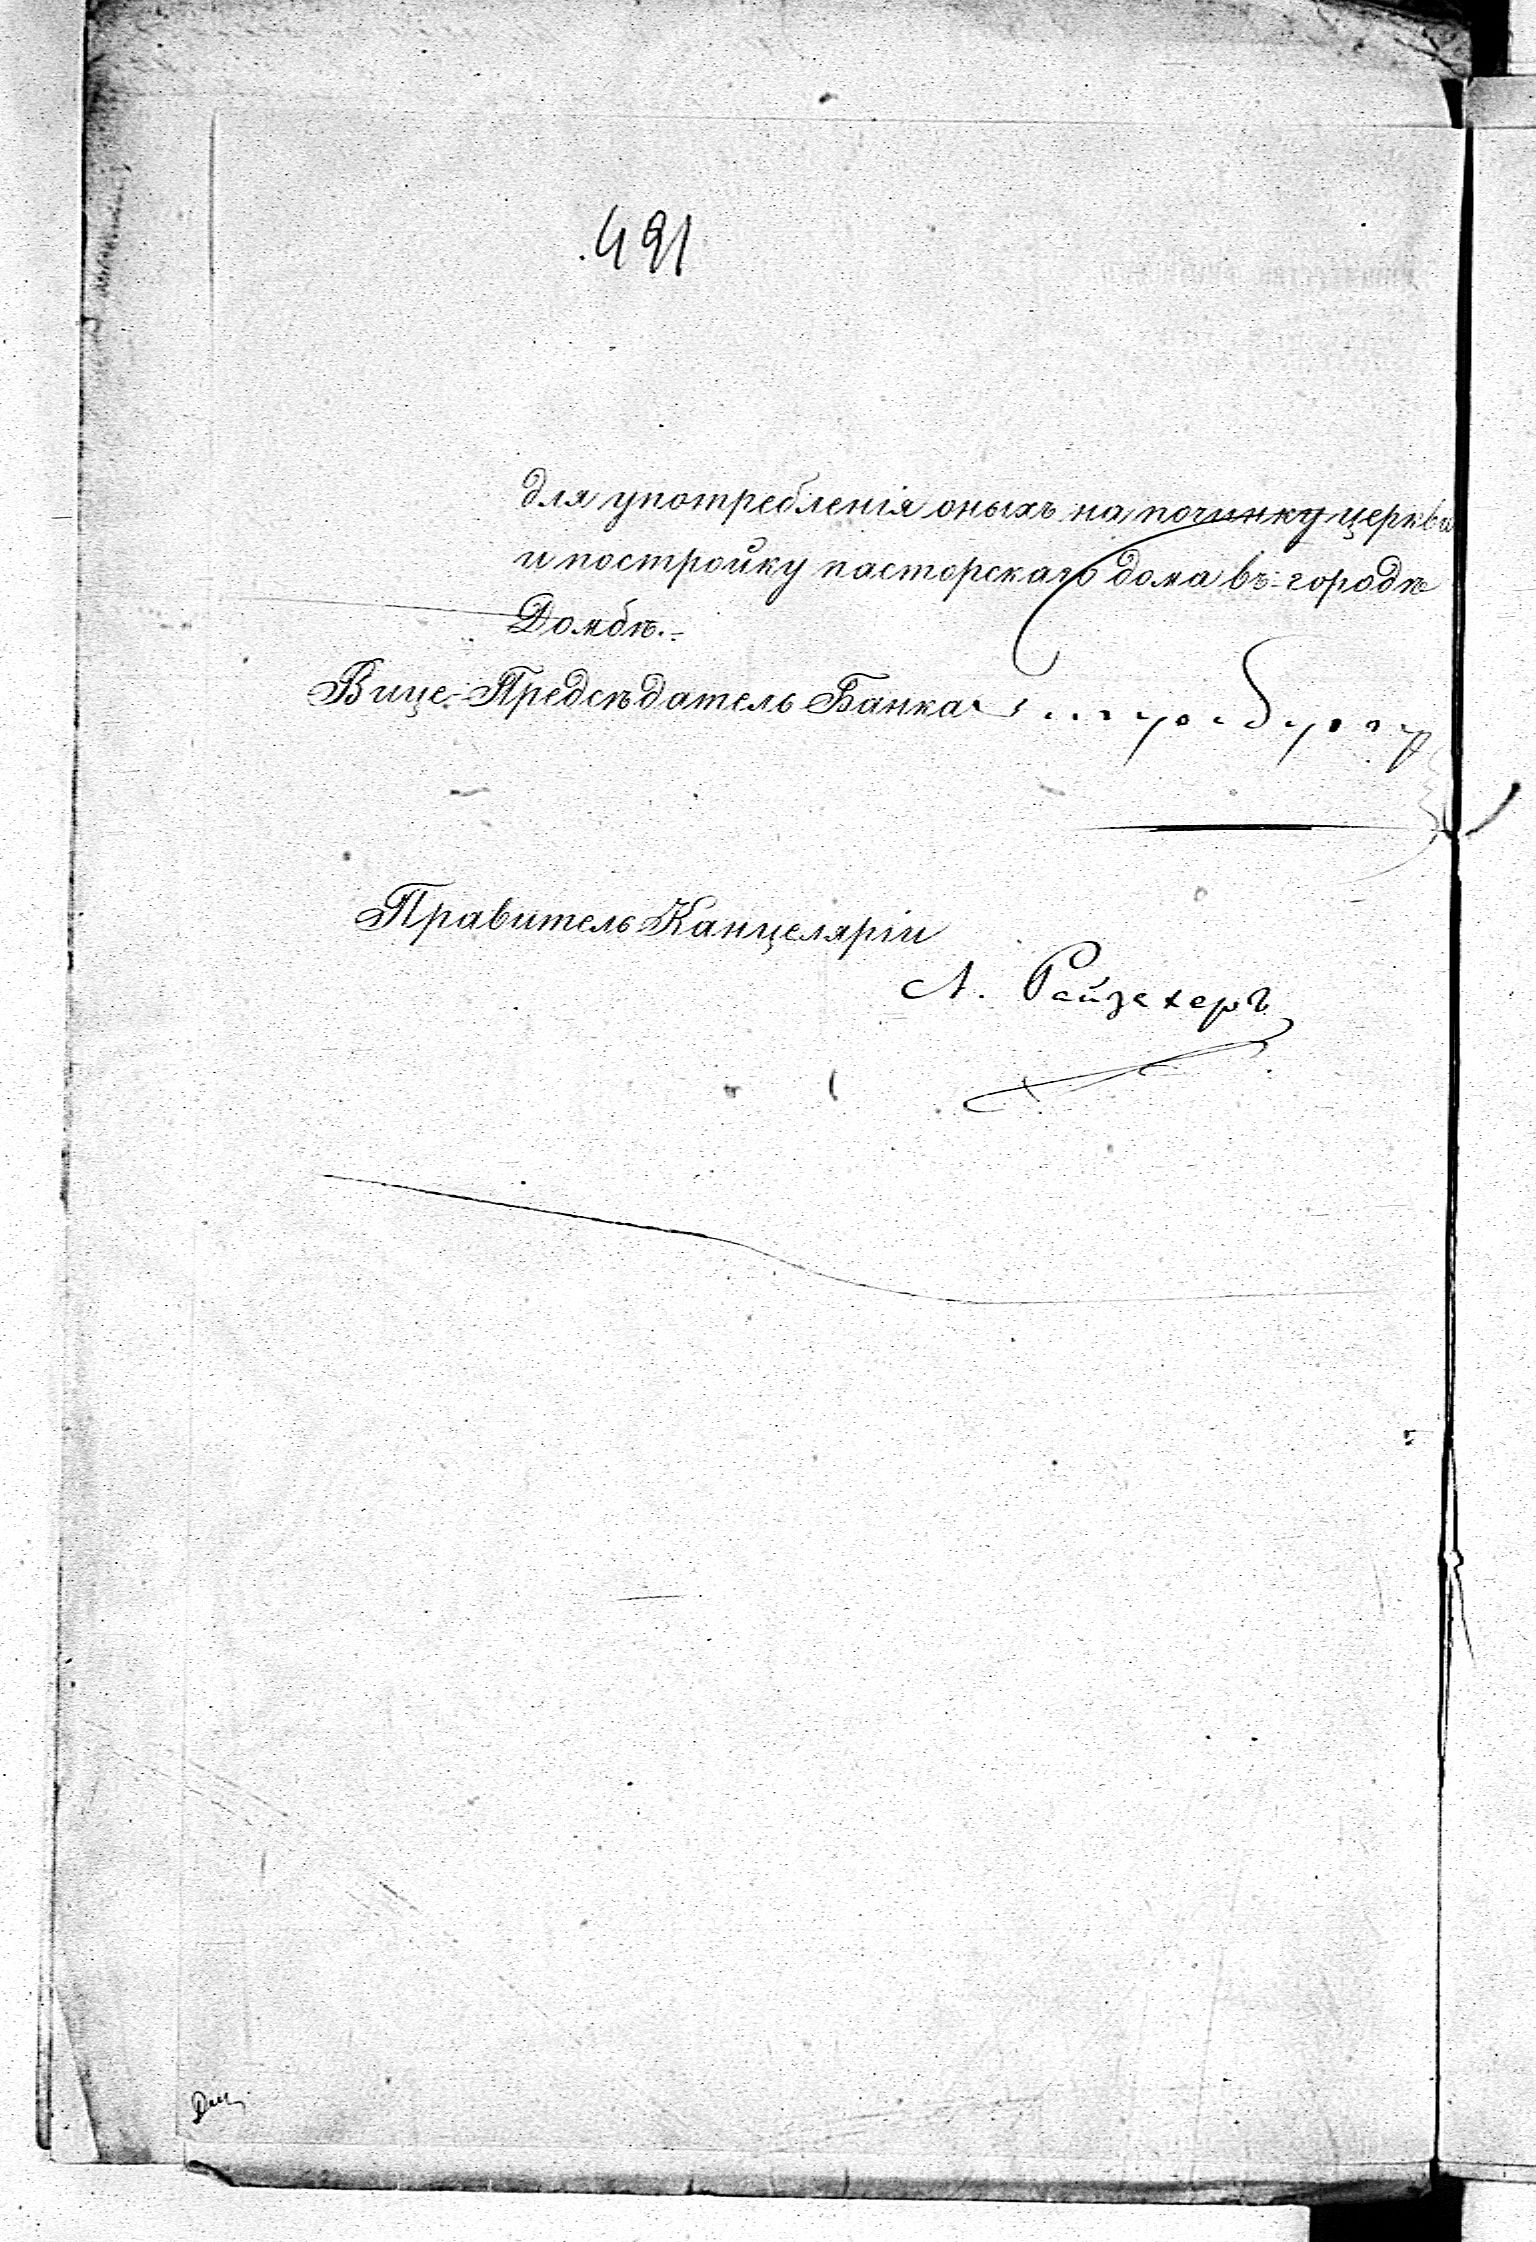 491
для употребленія оныхъ на починку церкви
и постройку пасторскаго дома въ городѣ
Домбѣ.
Вице-Предсѣдатель Банка
Правитель Канцеляріи
А. Райзахеръ